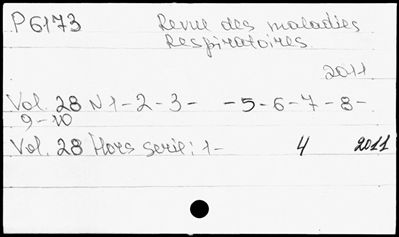 P6173 Revue des maladies
Respiratoires
2011
Vol. 28 N 1-2-3- -5-6-7-8-
9-10
Vol. 28 Hors serie: 1- 4 2011